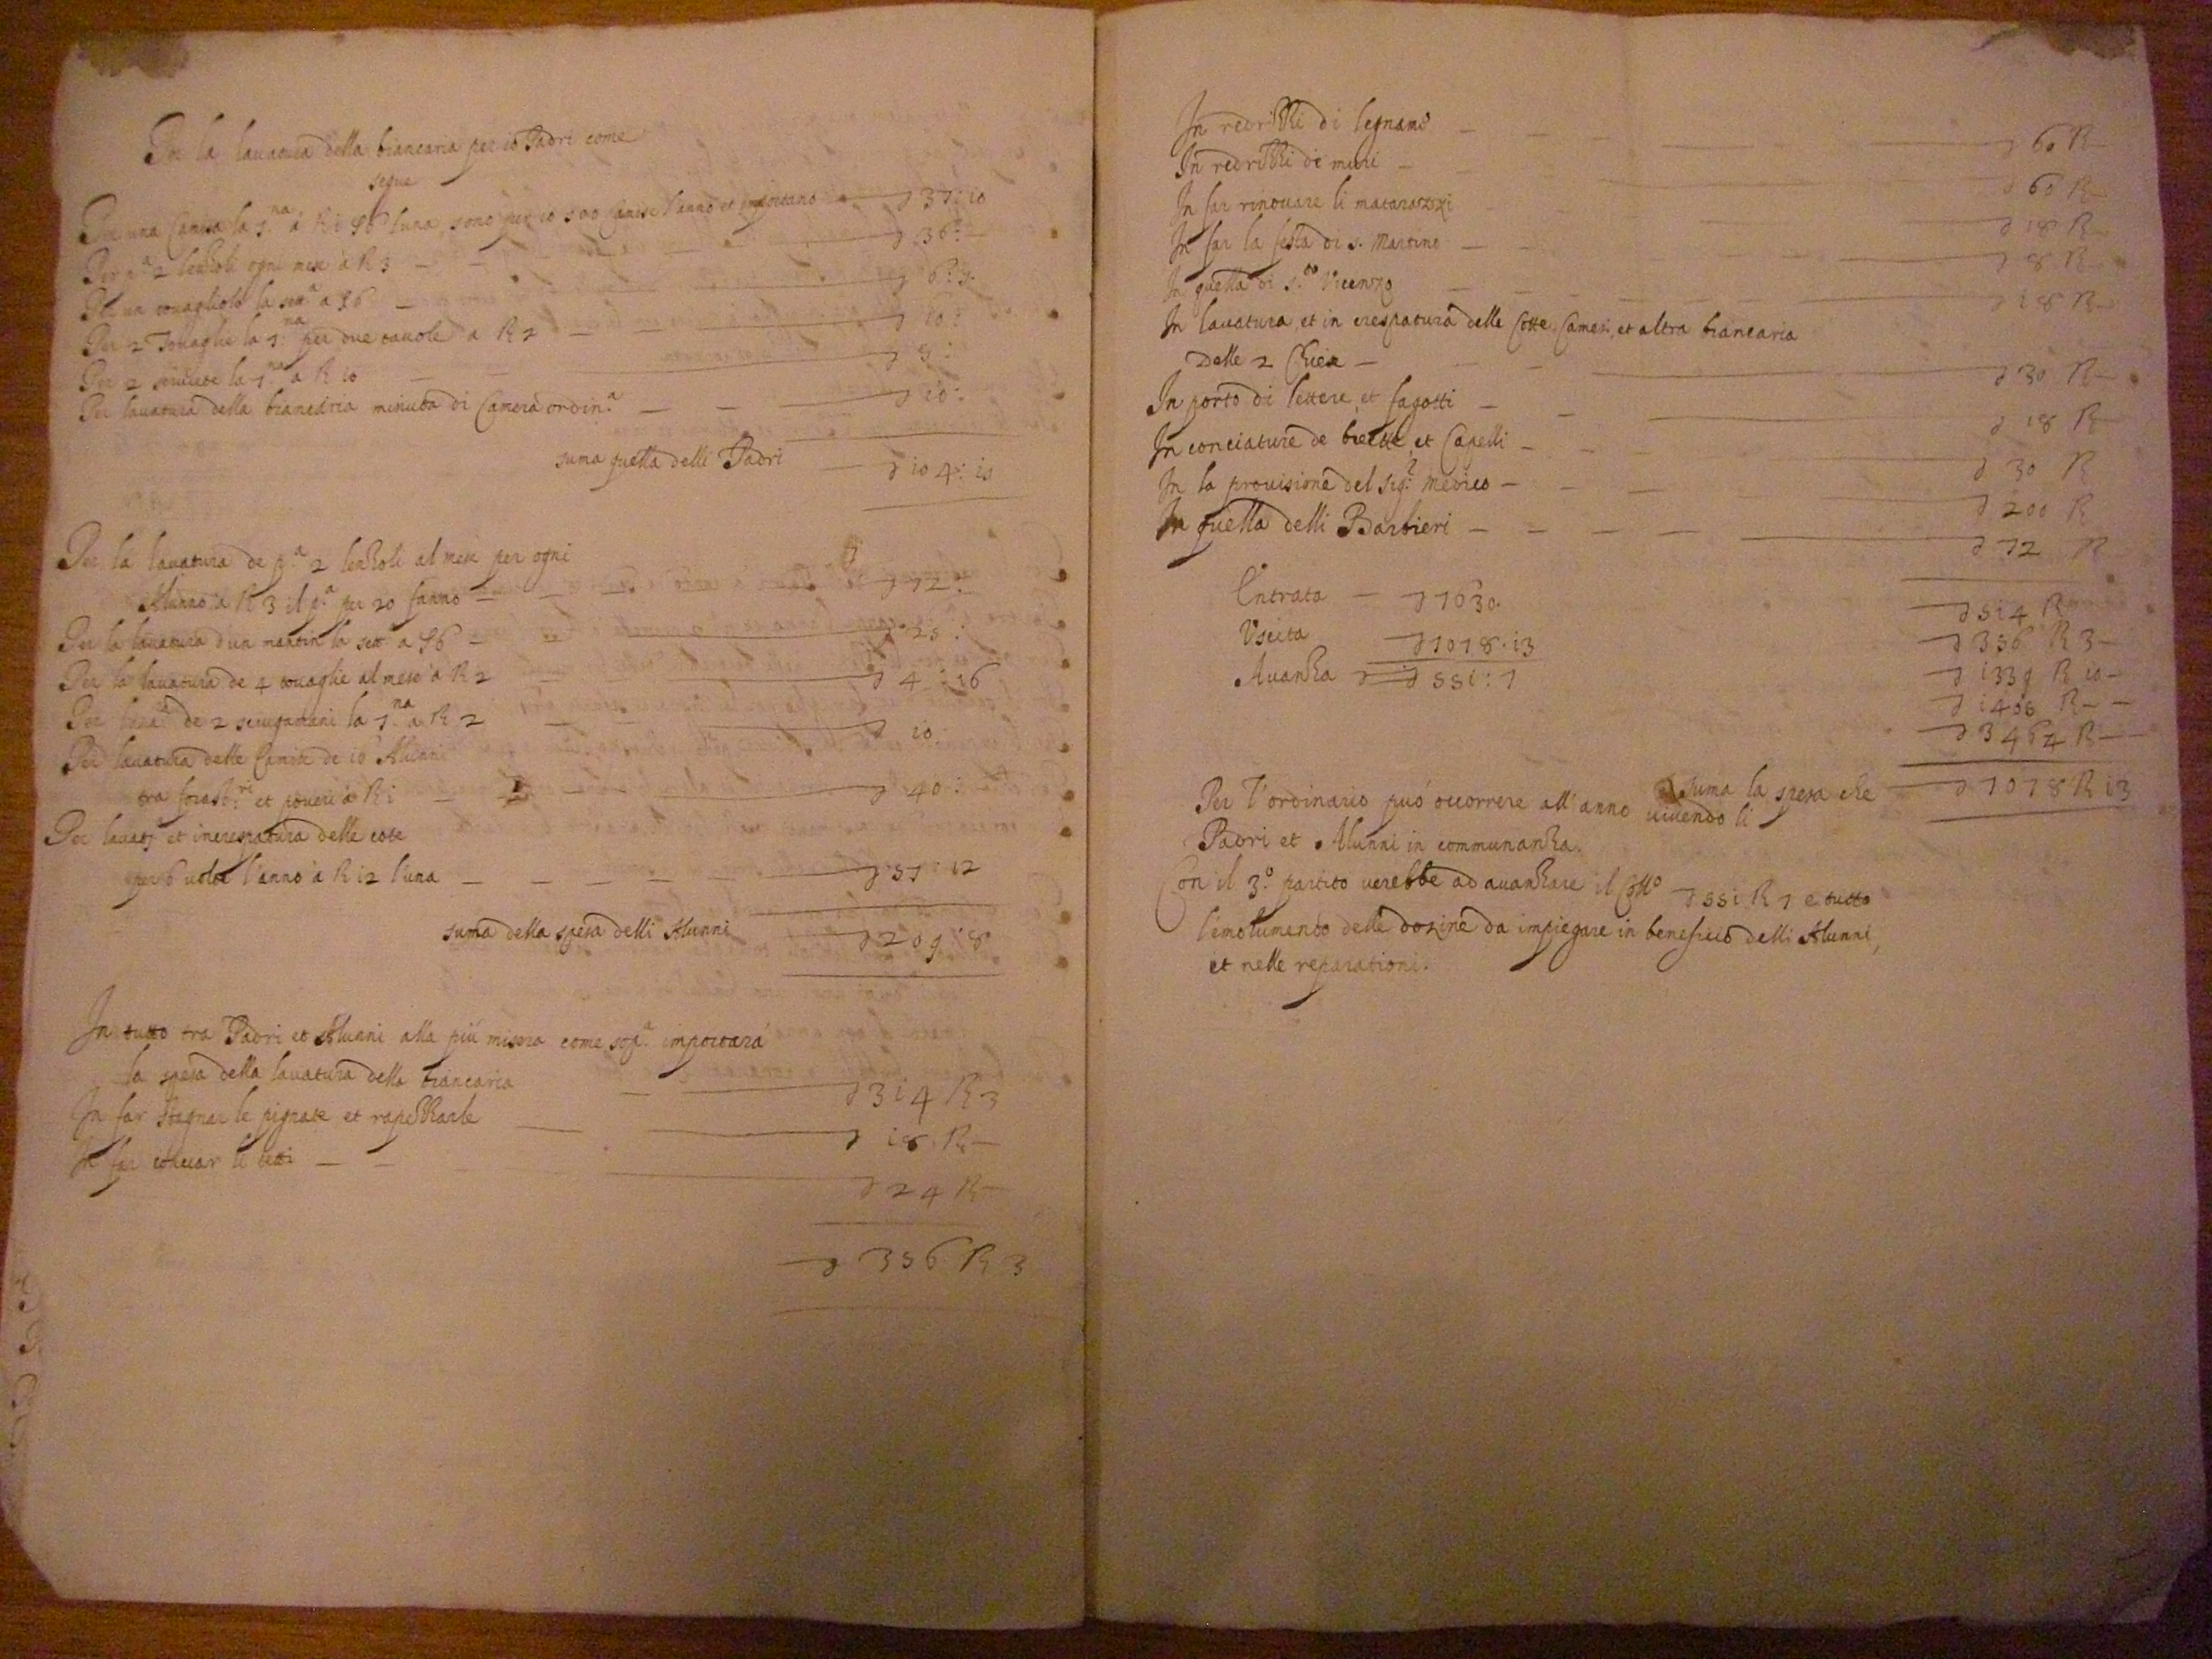 Per la lauatura della biancaria per 10 Padri come
segue
Per una Camisa la 7.na à R i 96 l'una, sono per 10 500 Camise l'anno et importano — 37: 10
Per p.a 2 lenzoli ogni mese à R 3 — 36: —
Per un touagliolo la sett.a a 96 — 6: 5
Per 2 Touaglie la 7.na per due tauole à R 2 — 10:
Per 2 seruiete la 7.na à R 10 — 5:
Per lauatura della biancaria minuta di Camera ordin.a — 10:
suma quella delli Padri — 104: 15
Per la lauatura de p.a 2 lenzoli al mese per ogni
Alunno à R 3 il p.a per 20 fanno — 72:
Per la lauatura d'un mantin la sett.a à 96 — 25:
Per la lauatura de 4 touaglie al mese à R 2 — 4: 16
Per laua.a de 2 sciugamani la 7.na à R 2 — 10
Per lauatura delle Camise de 10 Alunni
tra forast.ri et poueri à R i — 40:
Per lauat.a et increspatura delle cote
per 6 uolte l'anno à R 12 l'una — 57: 12
suma della spesa delli Alunni — 209: 8
In tutto tra Padri et Alunni alla più misera come sop.a importarà
la spesa della lauatura della biancaria — 314 R 3
In far stagnar le pignate et rapezzarle — 18 R —
In far conciar li letti — 24 R —
356 R 3
In redrizzi di legnami — 60 R —
In redrizzi de muri — 60 R —
In far rinouare li matarazzi — 18 R —
In far la festa di s. Martino — 8 R —
In quella di s.to Vicenzo — 18 R —
In lauatura, et in crespatura delle Cotte, Camesi, et altra biancaria
delle 2 Chiese — 30 R —
In porto di lettere, et fagotti — 18 R —
In conciature de brette, et Capelli — 30 R
In la prouisione del sig.r Medico — 200 R
In quella delli Barbieri — 72 R
514 R —
Entrata — 7630.
356 R 3 —
Vscita 7078.13
1339 R 10 —
Auanza 551: 7
1405 R — —
3464 R — —
suma la spesa che — 7078 R 13
Per l'ordinario può occorrere all'anno uiuendo li
Padri et Alunni in communanza.
Con il 3.o partito verebbe ad auanzare il Coll.o 551 R 7 e tutto
l'emolumento delle dozine da impiegare in beneficio delli Alunni,
et nelle reparationi.